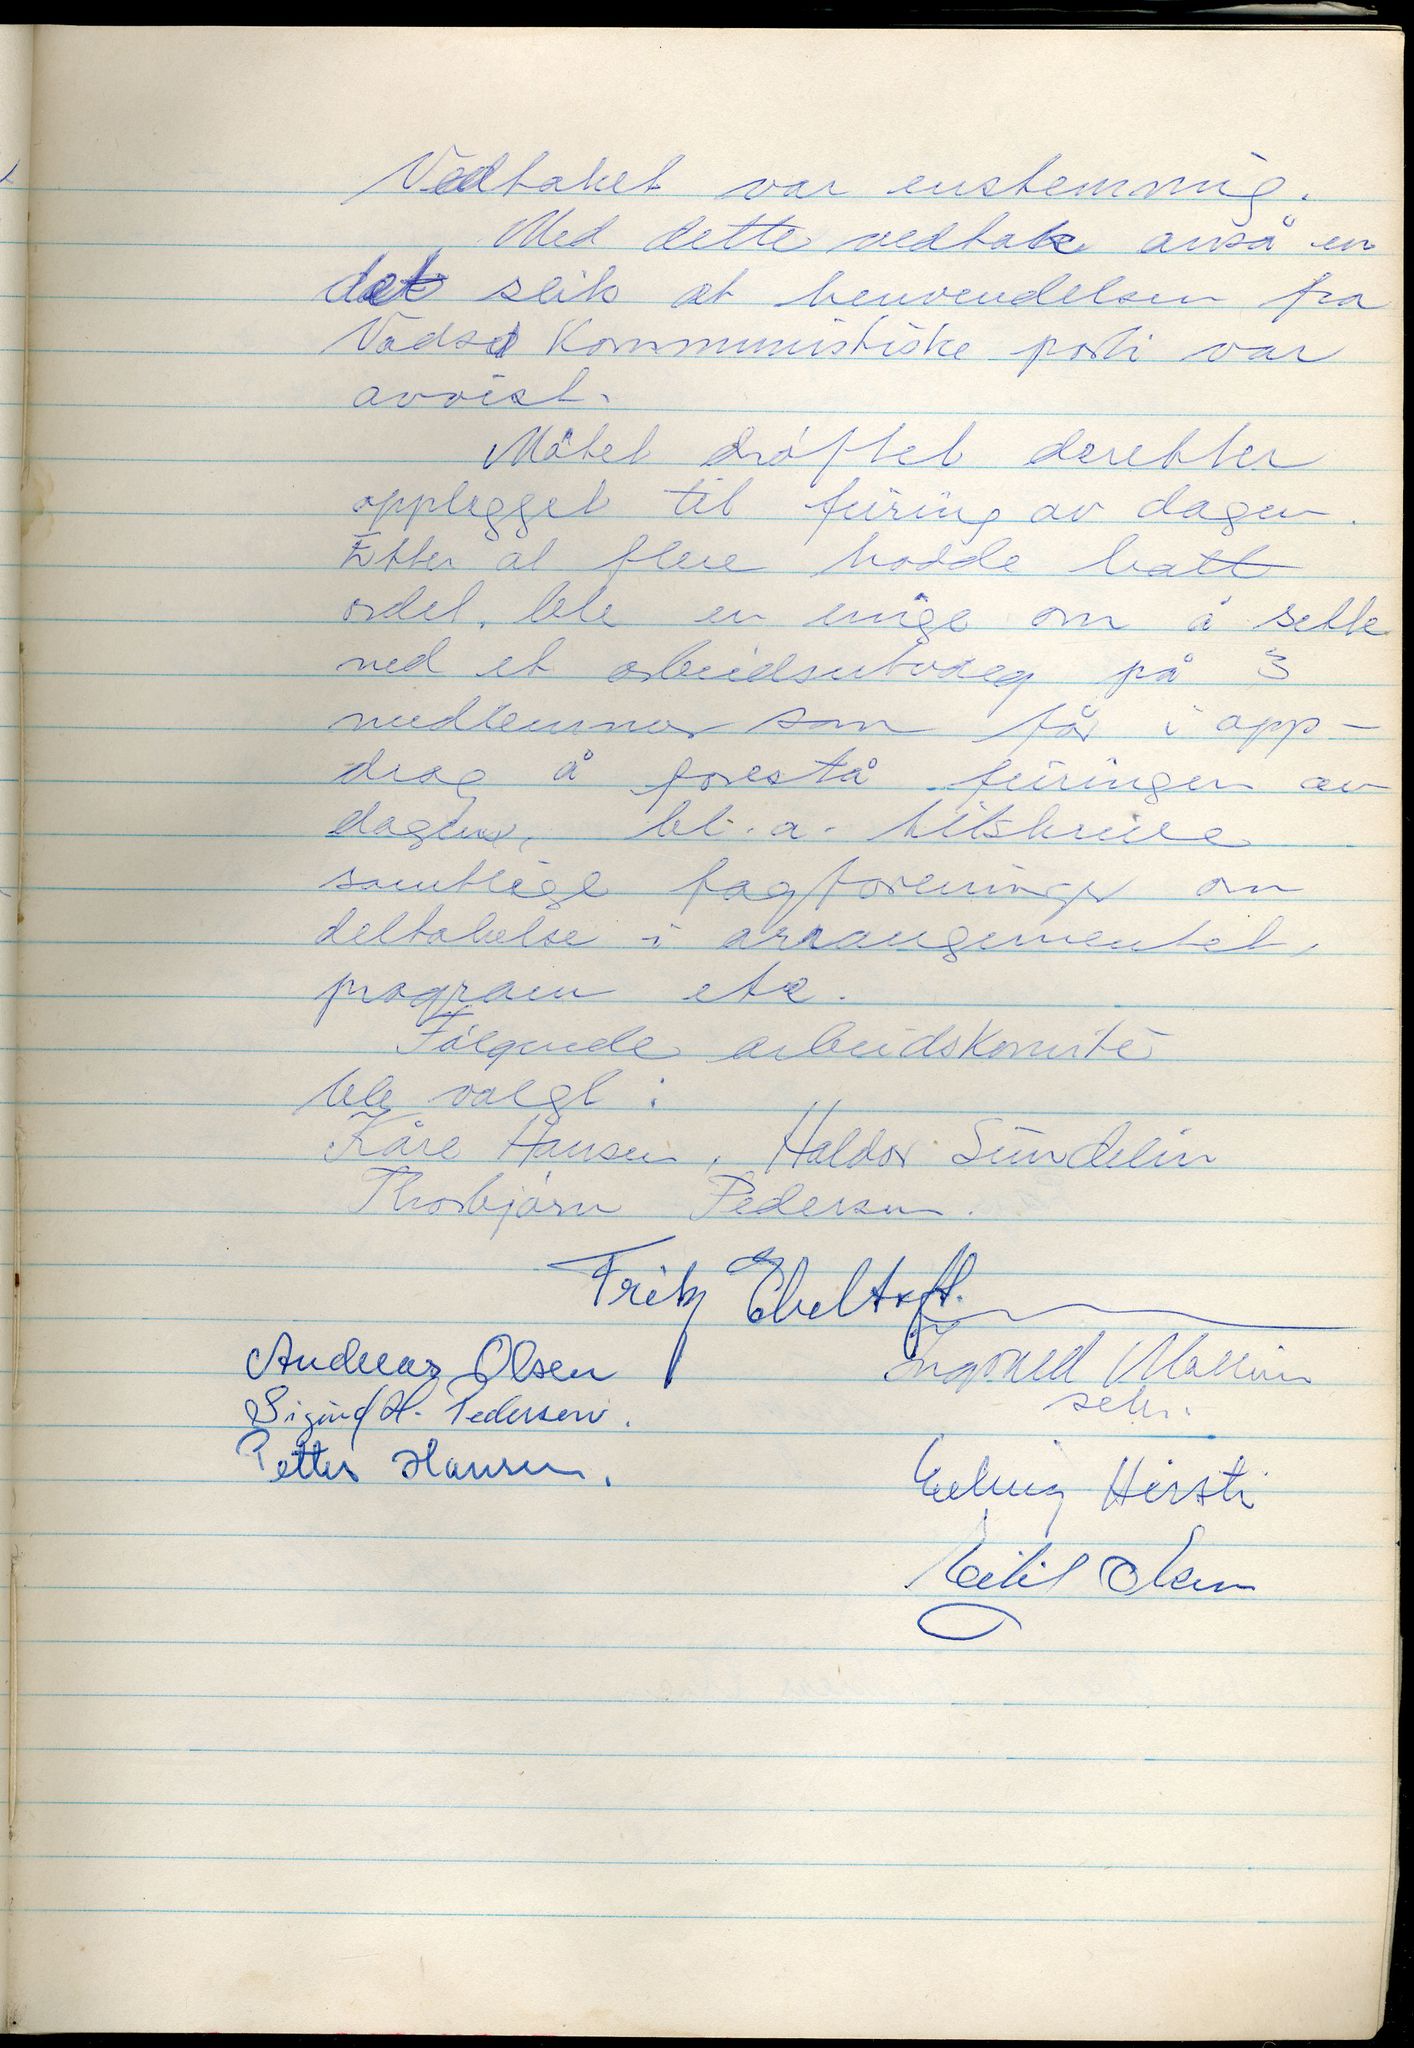 Vedtaket var enstemmig.
Med dette vedtak anså en
det slik at henvendelsen fra
Vadsø Kommunistiske parti var
avvist.
Møtet drøftet deretter
opplegget til feiring av dagen.
Etter at flere hadde hatt
ordet, ble en enige om å sette
ned et arbeidsutvalg på 3
medlemmer som får i opp-
drag å forestå feiringen av
dagen, bl.a. tilskrive
samtlige fagforeninger om
deltakelse i arrangementet,
program etc.
Følgende arbeidskomite
ble valgt:
Kåre Hansen, Haldor Sundelin
Thorbjørn Pedersen.
Fritz Ebeltoft.
Andreas Olsen
Ingvald
sekr.
Sigurd H. Pedersen.
Petter Hansen.
Hirsti
Olsen